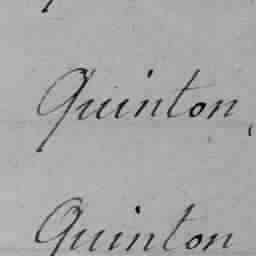 Quinton,
Quinton